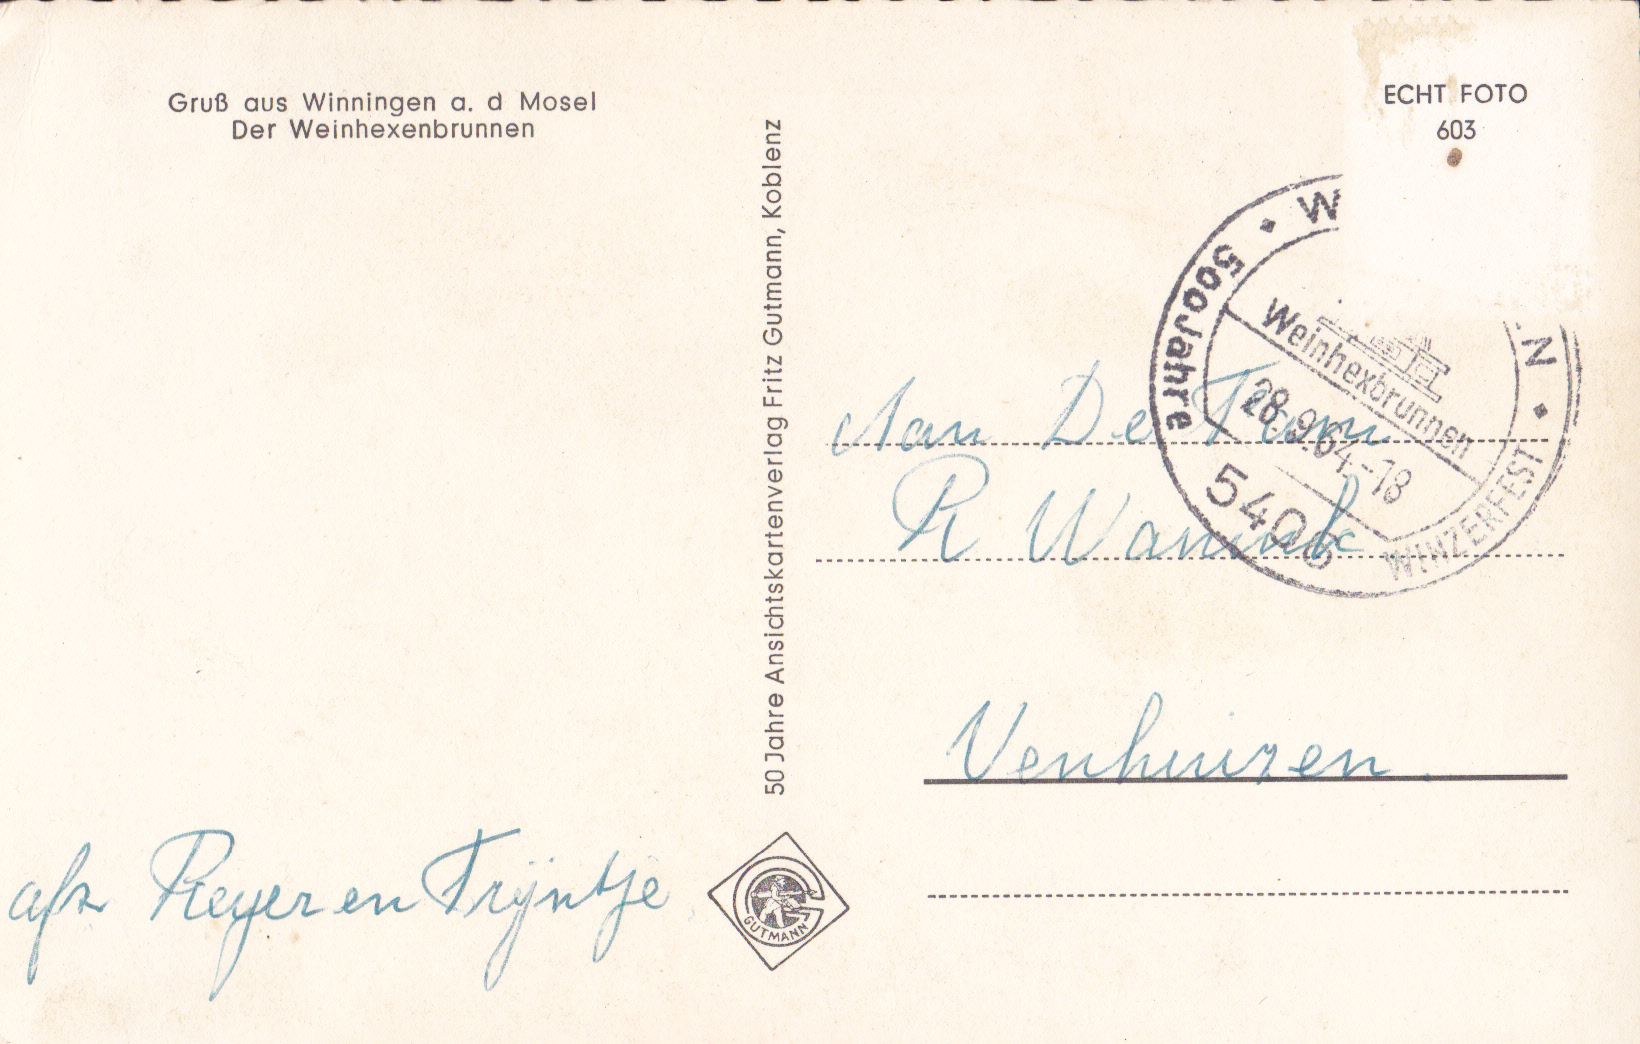 Gruß aus Winningen a. d Mosel
Der Weinhexenbrunnen
ECHT FOTO
603
50 Jahre Ansichtskartenverlag Fritz Gutmann, Koblenz
500 Jahre
Weinhexbrunnen
28.9.64.-18
WINZERFEST
Aan De Fam
R Wannk
Venhuizen.
afz Reyer en Trijntje
GUTMANN